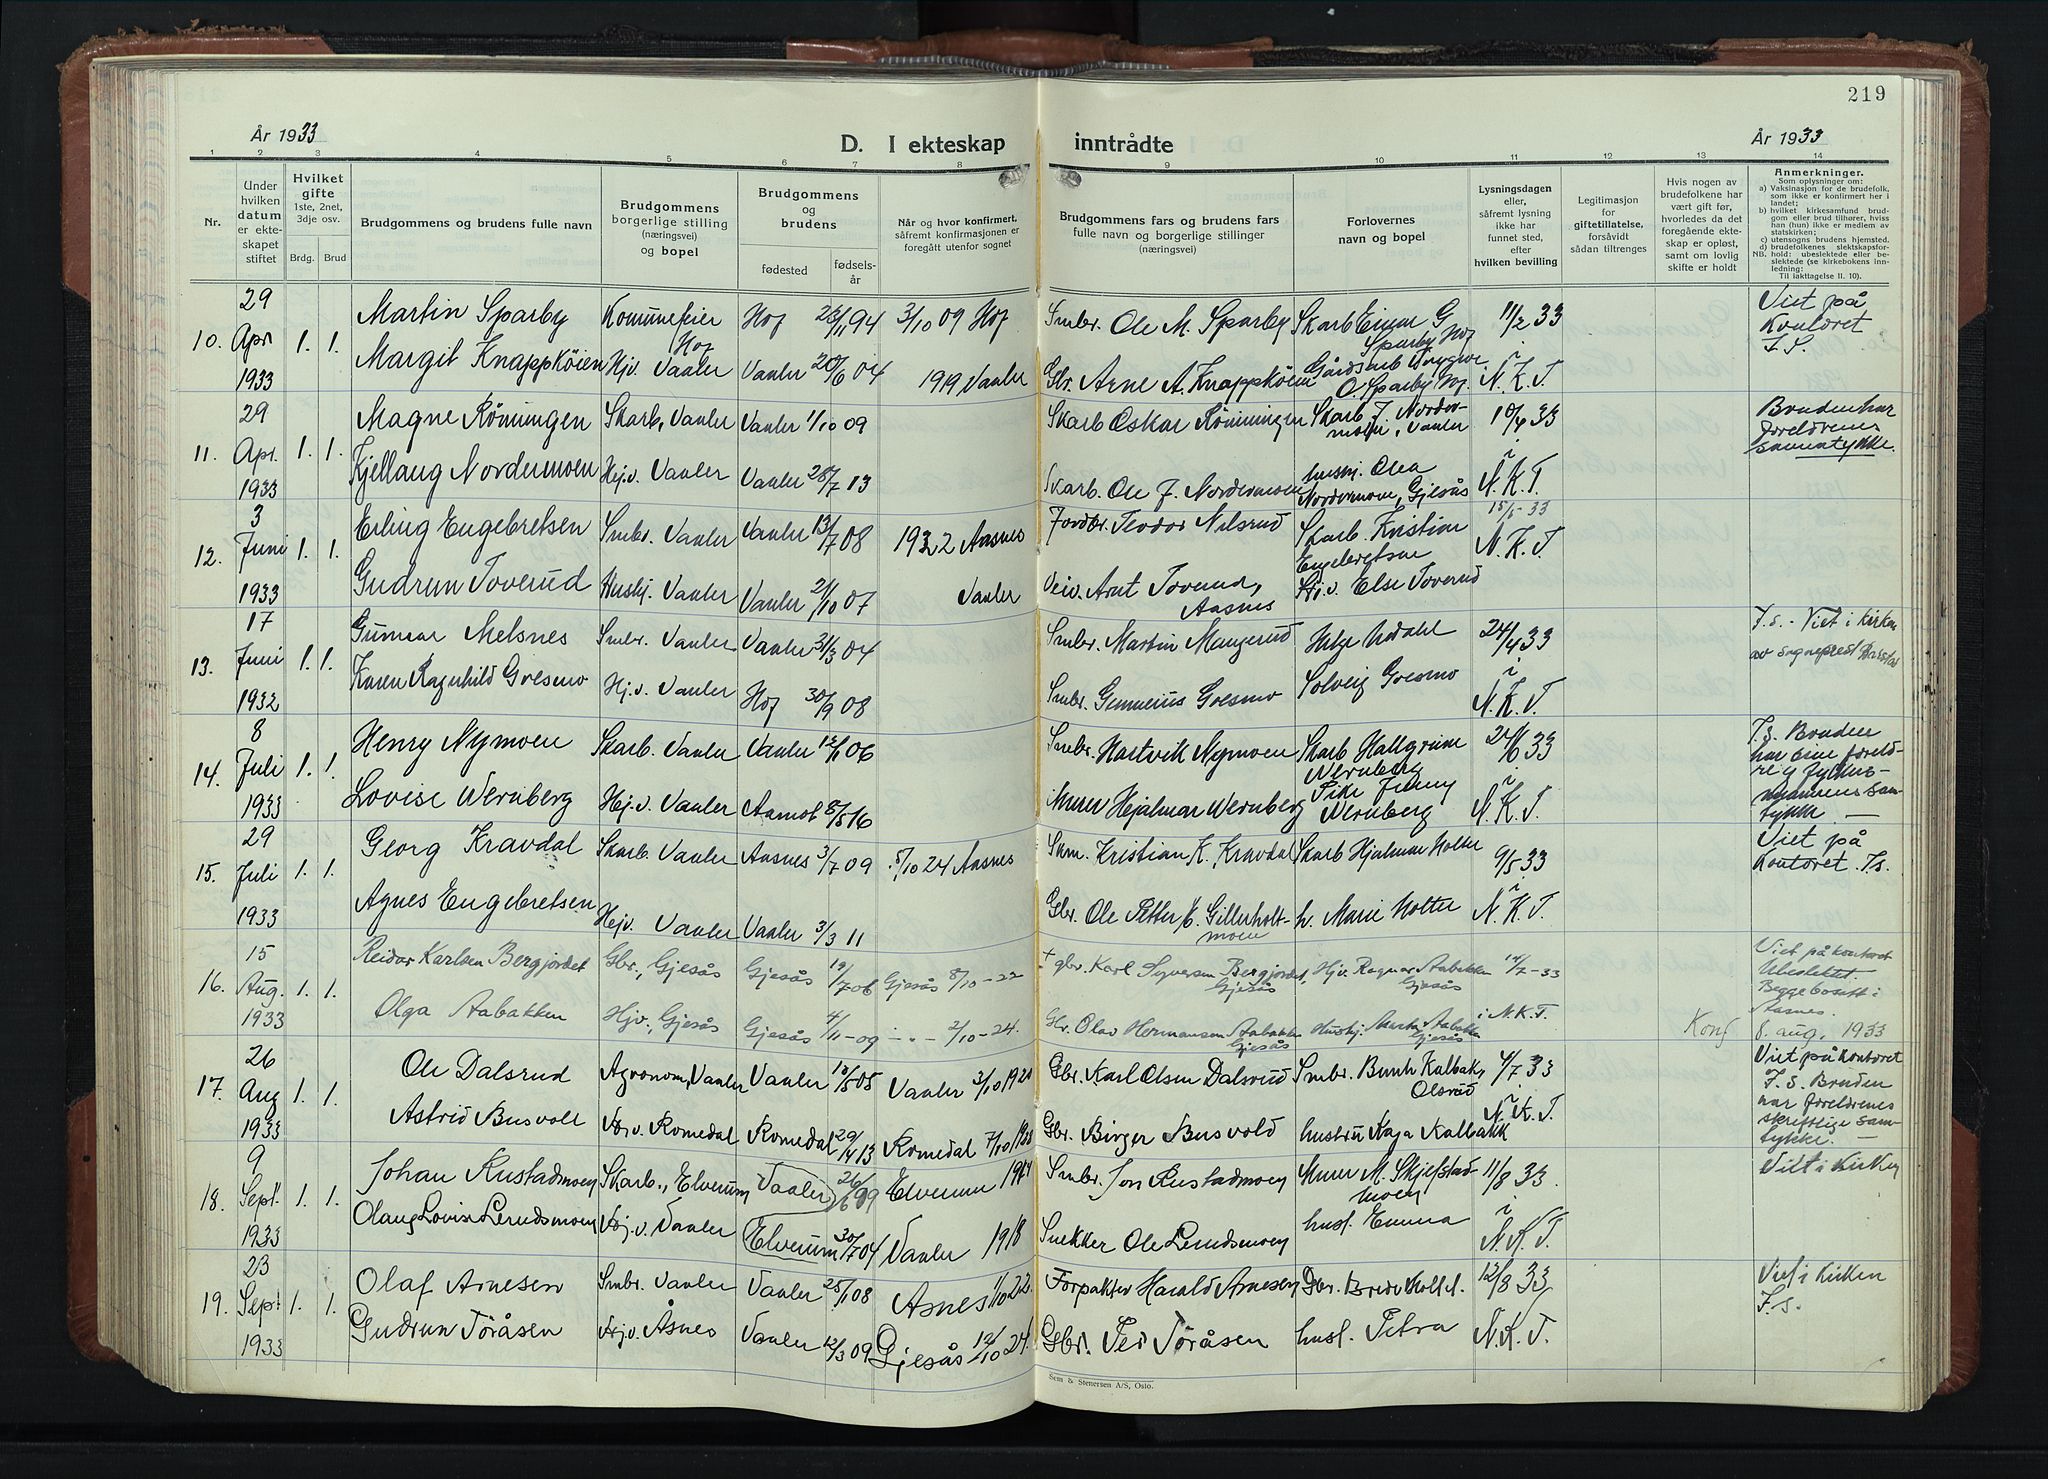 219
År 1933
D. I ekteskap inntrådte
År 1933
1 2 3 4 5 6 7 8 9 10 11 12 13 14
Nr.
Under hvilken datum er ekteskapet stiftet
Hvilket gifte
1ste, 2net, 3dje osv.
Brdg. Brud
Brudgommens og brudens fulle navn
Brudgommens borgerlige stilling (næringsvei) og bopel
Brudgommens og brudens
fødested
fødselsår
Når og hvor konfirmert, såfremt konfirmasjonen er foregått utenfor sognet
Brudgommens fars og brudens fars fulle navn og borgerlige stillinger (næringsvei)
Forlovernes navn og bopel
Lysningsdagen eller, såfremt lysning ikke har funnet sted, efter hvilken bevilling
Legitimasjon for giftetillatelse, forsåvidt sådan tiltrenges
Hvis nogen av brudefolkene har vært gift før, hvorledes da det foregående ekteskap er opløst, samt om lovlig skifte er holdt
Anmerkninger.
Som oplysninger om:
a) Vaksinasjon for de brudefolk, som ikke er konfirmert her i landet;
b) hvilket kirkesamfund brudgom eller brud tilhører, hviss han (hun) ikke er medlem av statskirken;
c) utensogns brudens hjemsted.
d) brudefolkenes slektskapsforhold: ubeslektede eller beslektede (se kirkebokens innledning:
NB. Til iakttagelse II. 10).
10. 29 Apr 1933 1. 1.
Martin Sparby Kommunefeier Hof Hof 23/11 94 3/10 09 Hof Smbr. Ole M. Sparby Skarb Einar G Sparby Hof 11/2 33 Viet på Kontoret
Margit Knappkøien Hj.v. Vaaler Vaaler 20/6 04 1919 Vaaler Gbr. Arne A. Knappkøien Gårdsarb Trygve O. Sparby Hof i N.K.T
11. 29 Apr. 1933 1. 1.
Magne Rönningen Skarb, Vaaler Vaaler 1/10 09 Skarb Oskar Rönningen Skarb. J. Nordermoen, Vaaler 10/4 33 Bruden har foreldrenes samtykke.
Kjellaug Nordermoen Hej.v. Vaaler Vaaler 28/7 13 Skarb. Ole J. Nordermoen huskj. Olea Nordermoen, Gjesås i N.K.T.
12. 3 Juni 1933 1. 1.
Erling Engebretsen Smbr. Vaaler Vaaler 13/7 08 1922 Aasnes Teodor Nilsrud Skarb Kristian Engebretsen 15/5-33
Gudrun Toverud Huskj. Vaaler Vaaler 21/10 07 Vaaler Veiv. Arnt Toverud, Aasnes Hj.v. Else Toverud N.K.T
13. 17 Juni 1932 1. 1.
Gunnar Melsnes Smbr. Vaaler Vaaler 31/3 04 Smbr. Martin Mangerud Helge Urdahl 24/4 33 F.s. - Viet i kirken av sogneprest
Karen Ragnhild Gresmo Hj.v. Vaaler Hof 30/9 08 Smbr. Gunnerius Gresmo Solveig Gresmo i N.K.T.
14. 8 Juli 1933 1. 1.
Henry Nymoen Skarb. Vaaler Vaaler 06 Smbr. Hartvik Nymoen Skarb Hallgrim Wernberg 24/6 33 F.s. Bruden har sine foreldre og fylkesmannens samtykke. —
Lovise Wernberg Hej.v. Vaaler Aamot 8/5 16 Murer Hjalmar Wernberg Pike Jenny Wernberg i N.K.T.
15. 29 Juli 1933 1. 1.
Georg Kravdal Skarb. Vaaler Aasnes 3/7 09 5/10 24 Aasnes Skm. Kristian K. Kravdal Skarb Hjalmar Holter 9/5 33 Viet på kontoret. F.s.
Agnes Engebretsen Hejv. Vaaler Vaaler 3/3 11 Gbr. Ole Petter Gillerholtmoen h. Marie Holter i N.K.T.
16. 15 Aug. 1933 1. 1.
Reidar Karlsen Bergjordet Gbr., Gjesås Gjesås 19/7 06 Gjesås 8/10-22 + gbr. Karl Syversen Bergjordet, Gjesås Hjv. Ragnar Aabakken Gjesås 14/7-33 Viet på kontoret Ubeslektet. Begge bosatt i Aasnes.
Olga Aabakken Hjv., Gjesås Gjesås 4/11-09 - " - 2/10-24. Gbr. Olav Hermansen Aabakken Gjesås Huskj. Marta Aabakken Gjesås i N.K.T. Konf 8. aug. 1933
17. 26 Aug 1933 1. 1.
Ole Dalsrud Agronom, Vaaler Vaaler 10/5 05 Vaaler 3/10 1920 Gbr. Karl Olsen Dalsrud Smbr. Bernh Kalbak, Olsrud 4/7 33 Viet på kontoret F.s. Bruden har foreldrenes skriftlige samtykke. —
Astrid Busvoll Hj.v. Romedal Romedal 29/4 13 Romedal 7/10 1928 Gbr. Birger Busvold hustru Kaja Kalbakk i N.K.T.
18. 9 Sept. 1933 1. 1.
Johan Rustadmoen Skarb., Elverum Vaaler 26/6 99 Elverum 1914 Smbr. Jon Rustadmoen Murer M. Skjefstadmoen 11/8 33. Viet i Kirken
Olaug Lovise Lerudsmoen Hj.v. Vaaler Elverum 30/7 04 Vaaler 1918 Snekker Ole Lerudsmoen husf. Emma i N.K.T.
19. 23 Sept 1933 1. 1.
Olaf Arnesen Smbr. Vaaler Vaaler 25/1 08 Åsnes 1/10 22. Forpakter Harald Arnesen Gbr. Brede 12/8 33 Viet i kirken F.s.
Gudrun Töråsen Hj.v. Åsnes Vaaler 12/3 09 Gjesås 12/10 24. Gbr. Per Töråsen husf. Petra N.K.T.
Sem & Stenersen A/S, Oslo.